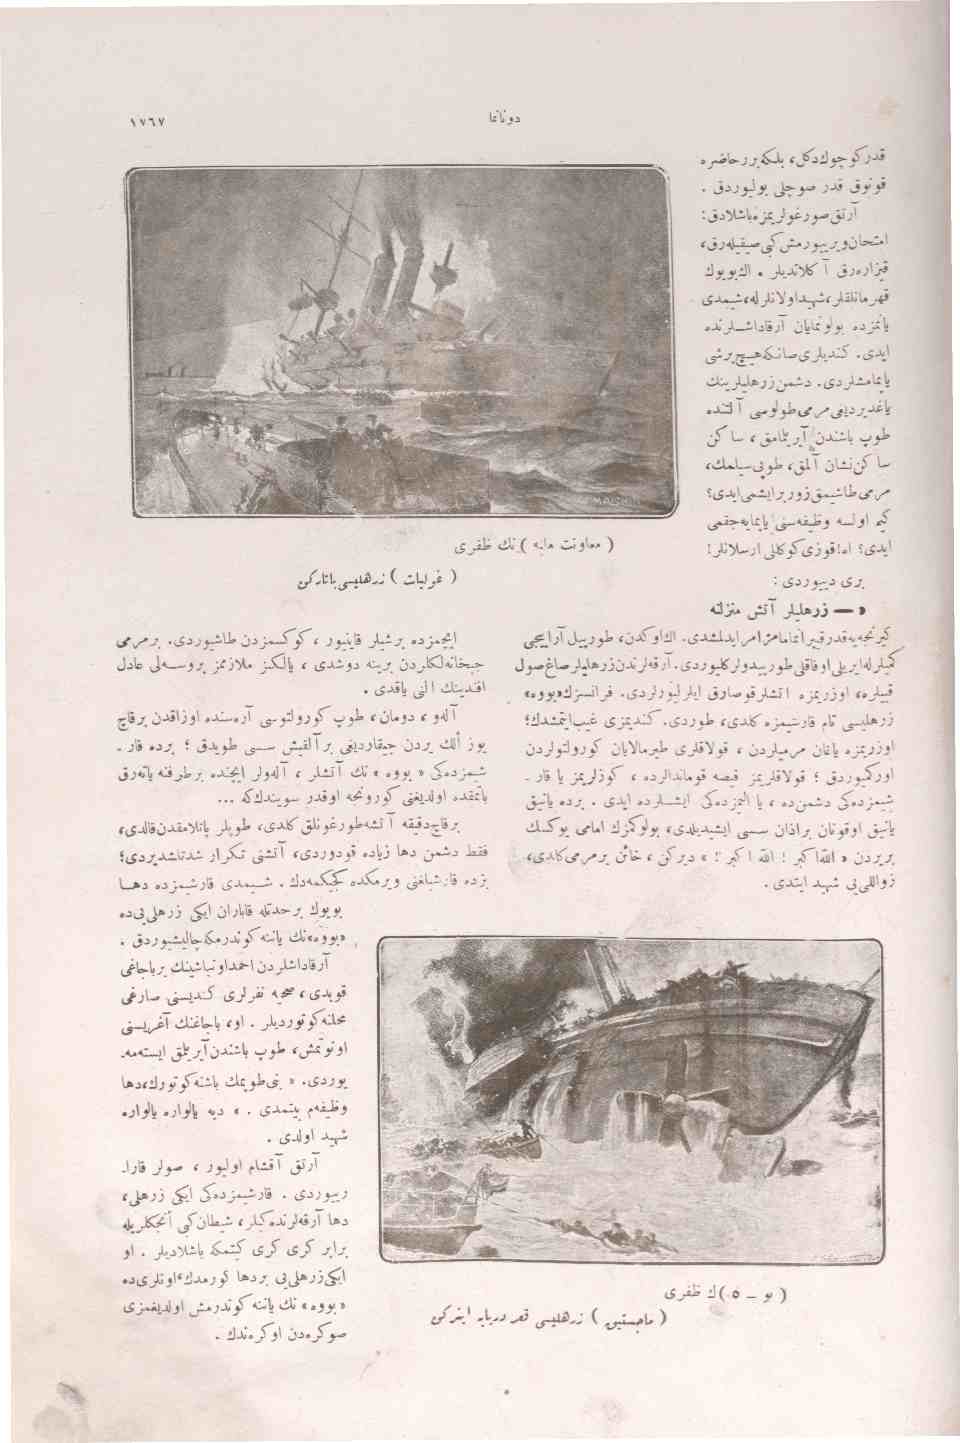 دونانما
١٧٦٧
قدر كوچوك دكل، بلكه برر حاضره
قونوق قدر صوچلى بوليوردق .
آرتق صورغولريمزه باشلادق :
امتحان ويرييورمش كبى صيقيله رق،
قيزاره رق آ كلاتديلر . اك بويوك
قهرمانلقلر، شهيد اولانلرله، شيمدى
يانمزده بولونمايان آرقاداشلرنده
ايدى. كنديلرى صانكه هيچ برشى
ياپمامشلردى. دشمن زرهليلرينك
ياغديرديغى مرمى طولوسى آلتنده
طوپ باشندن آيريلمامق، سا كن
سا كن نشان آلمق، طوپى سيلمك،
مرمى طاشيمق زور بر ايشمى ايدى؟
كيم اولسه وظيفه سنى ياپمايه جقمى
ايدى؟ اه! قوزى كوكللى ارسلانلر!
برى دييوردى :
« — زرهليلر آتش منزلنه
كيرنجه يه قدر قيپردانمامامز امر ايدلمشدى. اك اوكدن، طورپيل آراييجى
كميلرله ايريلى اوفاقلى طورپيدولر كليوردى. آرقه لرندن زرهليلر صاغ صول
قييلره، اوزريمزه آتشلر قوصارق ايلرليورلردى. فرانسزك «بووه»
زرهليسى تام قارشيمزه كلدى، طوردى. كنديمزى غيب ايتمشدك؛
اوزريمزه ياغان مرميلردن ، قولاقلرى طيرمالايان كورولتولردن
اوركميوردق ؛ قولاقلريمز قيصه قوماندالرده ، كوزلريمز يا قار ـ
شيمزده كى دشمنده ، يا المزده كى ايشلرده ايدى . برده يانيق
يانيق اوقونان برازان سسى ايشيديلدى، بولوكمزك امامى يوكسك
بريردن « الله اكبر ! الله اكبر ! » ديركن ، خائن برمرمى كلدى،
زواللى يى شهيد ايتدى .
( معاونت مليه ) نك ظفرى
( غوليات ) زرهليسى باتاركن
ايچمزده برشيلر قاينيور ، كوكسمزدن طاشيوردى. برمرمى
جبخانه لكلردن برينه دوشدى ، يالكز ملازممز بروسه لى عادل
افندينك النى ياقدى .
آلهو ، دومان، طوپ كورولتوسى آره سنده اوزاقدن برقاچ
يوز ألك بردن چيقارديغى بر آلقيش سسى طويدق ؛ برده قار ـ
شيمزده كى « بووه » نك آتشلر ، آلهولر ايچنده برطرفنه ياته رق
باتمقده اولديغنى كورونجه اوقدر سويندك كه ...
برقاچ دقيقه آتشه طورغونلق كلدى، طوپلر پاتلامقدن قالدى،
فقط دشمن دها زياده قودوردى، آتشنى تكرار شدتلشديردى؛
بزده قارشيلغنى ويرمكده كجيكمه دك . شيمدى قارشيمزده دها
بويوك برحدتله قاباران ايكى زرهلى يى ده
«بووه» نك ياننه كوندرمكه چاليشيوردق .
آرقاداشلردن احمد اونباشينك برباجاغى
قوپدى، صحيه نفرلرى كنديسنى صارغى
محلنه كوتورديلر . او، باجاغنك آغريسنى
اونوتمش، طوپ باشندن آيريلمق ايسته مه ـ
يوردى. « بنى طوپمك باشنه كوتورك، دها
وظيفه م بيتمدى . » ديه يالواره يالواره
شهيد اولدى .
آرتق آقشام اوليور ، صولر قارا ـ
رييوردى . قارشيمزده كى ايكى زرهلى،
دها آرقه لرنده كيلر، شيطان كبى آنجكلريله
برابر كرى كرى كيتمكه باشلاديلر . او
ايكى زرهلى يى بردها كورمدك، اونلرى ده
«بووه» نك ياننه كوندرمش اولديغمزى
صوكره دن اوكره ندك .
( يو ـ ٥ ) ك ظفرى
( ماجستيق ) زرهليسى قعر دريايه اينركن